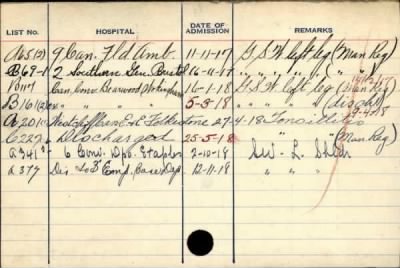 LIST No. HOSPITAL DATE OF ADMISSION REMARKS
A65(2) 9 Can. Fld Amb. 11-11-17 G.S.W. left leg (Man Reg)
B69-1 2 Southern Gen. Bristol 16-11-17 " " " " "
Can. Conv. Bearwood Wokingham 16-1-18 G.S.W. left leg (Man Reg)
B161(2) " " " 5-3-18 " " " (disch)
A201 West Cliff Can. E & E Folkestone 27-4-18 Tonsillitis
C222 Discharged 25-5-18 " (Man Reg)
A341 6 Conv. Dpo. Etaples 2-10-18 SW. L. Shldr
A377 Dis. to B Emp. Base Dep 12-11-18 " "